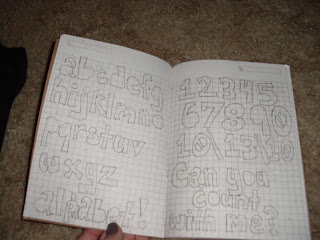 abcdefg
hijklmno
pqrstuv
wxyz
=
alfabet!
12345
67890
10\13\10
Can you
count
with me?